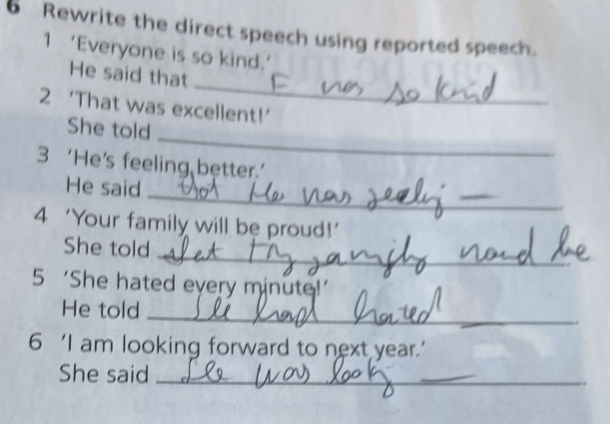 6 Rewrite the direct speech using reported speech.
1 'Everyone is so kind.'
He said that E was so kind
2 'That was excellent!'
She told
3 'He's feeling better.'
He said that He was feeling —
4 'Your family will be proud!'
She told that my family would be
5 'She hated every minute!'
He told She had hated —
6 'I am looking forward to next year.'
She said She was looking —